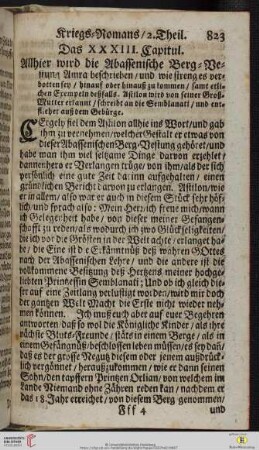 Kriegs-Romans / 2. Theil. 823
Das XXXIII. Capitul.
Allhier wird die Abassenische Berg-Ve-
stung Amra beschrieben / und wie streng es ver-
botten sey / hinauf oder hinauß zu kommen / samt etli-
chen Exempeln deßfalls. Astilon wird von seiner Groß-
Mutter erkannt / schreibt an die Semblanati / und ent-
fliehet auß dem Gebürge.
fiel dem Aldion allhie ins Wort / und gab
ihm zu vernehmen / welcher Gestalt er etwas von
dieser Abassenischen Berg-Vestung gehöret / und
habe man ihm viel seltzame Dinge darvon erzehlet /
dannenhero er Verlangen trüge von ihm / als der sich
persönlich eine gute Zeit darinn aufgehalten / einen
gründlichen Bericht darvon zu erlangen. Astilon / wie
er in allem / also war er auch in diesem Stück sehr höf-
lich / und sprach also: Mein Herz / ich freue mich / wann
ich Gelegenheit habe / von dieser meiner Gefangen-
schafft zu reden / als wodurch ich zwo Glückseligkeiten /
die ich vor die Grösten in der Welt achte / erlanget ha-
be / die Eine ist die Erkänntnüß deß wahren GOttes
nach der Abassenischen Lehre / und die andere ist die
vollkommene Besitzung deß Hertzens meiner hochge-
liebten Printzessin Semblanati; Und ob ich gleich die-
ser auf eine Zeitlang verlustiget worden / wird mir doch
der gantzen Welt Macht die Erste nicht wieder neh-
men können. Ich muß euch aber auf euer Begehren
antworten / daß so wol die Königliche Kinder / als ihre
nächste Bluts-Freunde / stäts in einem Berge / als in
einem Gefängnüß beschlossen leben müssen / es sey dañ /
daß es der grosse Negutz diesem oder jenem außdrück-
lich vergönnet / herauß zu kommen / wie er dann seinen
Sohn / den tapffern Printzen Orlian / von welchem im
Lande Niemand ohne Zähren reden kan / nachdem er
das 18 Jahr erreichet / von diesem Berg genommen /
Fff 4 und